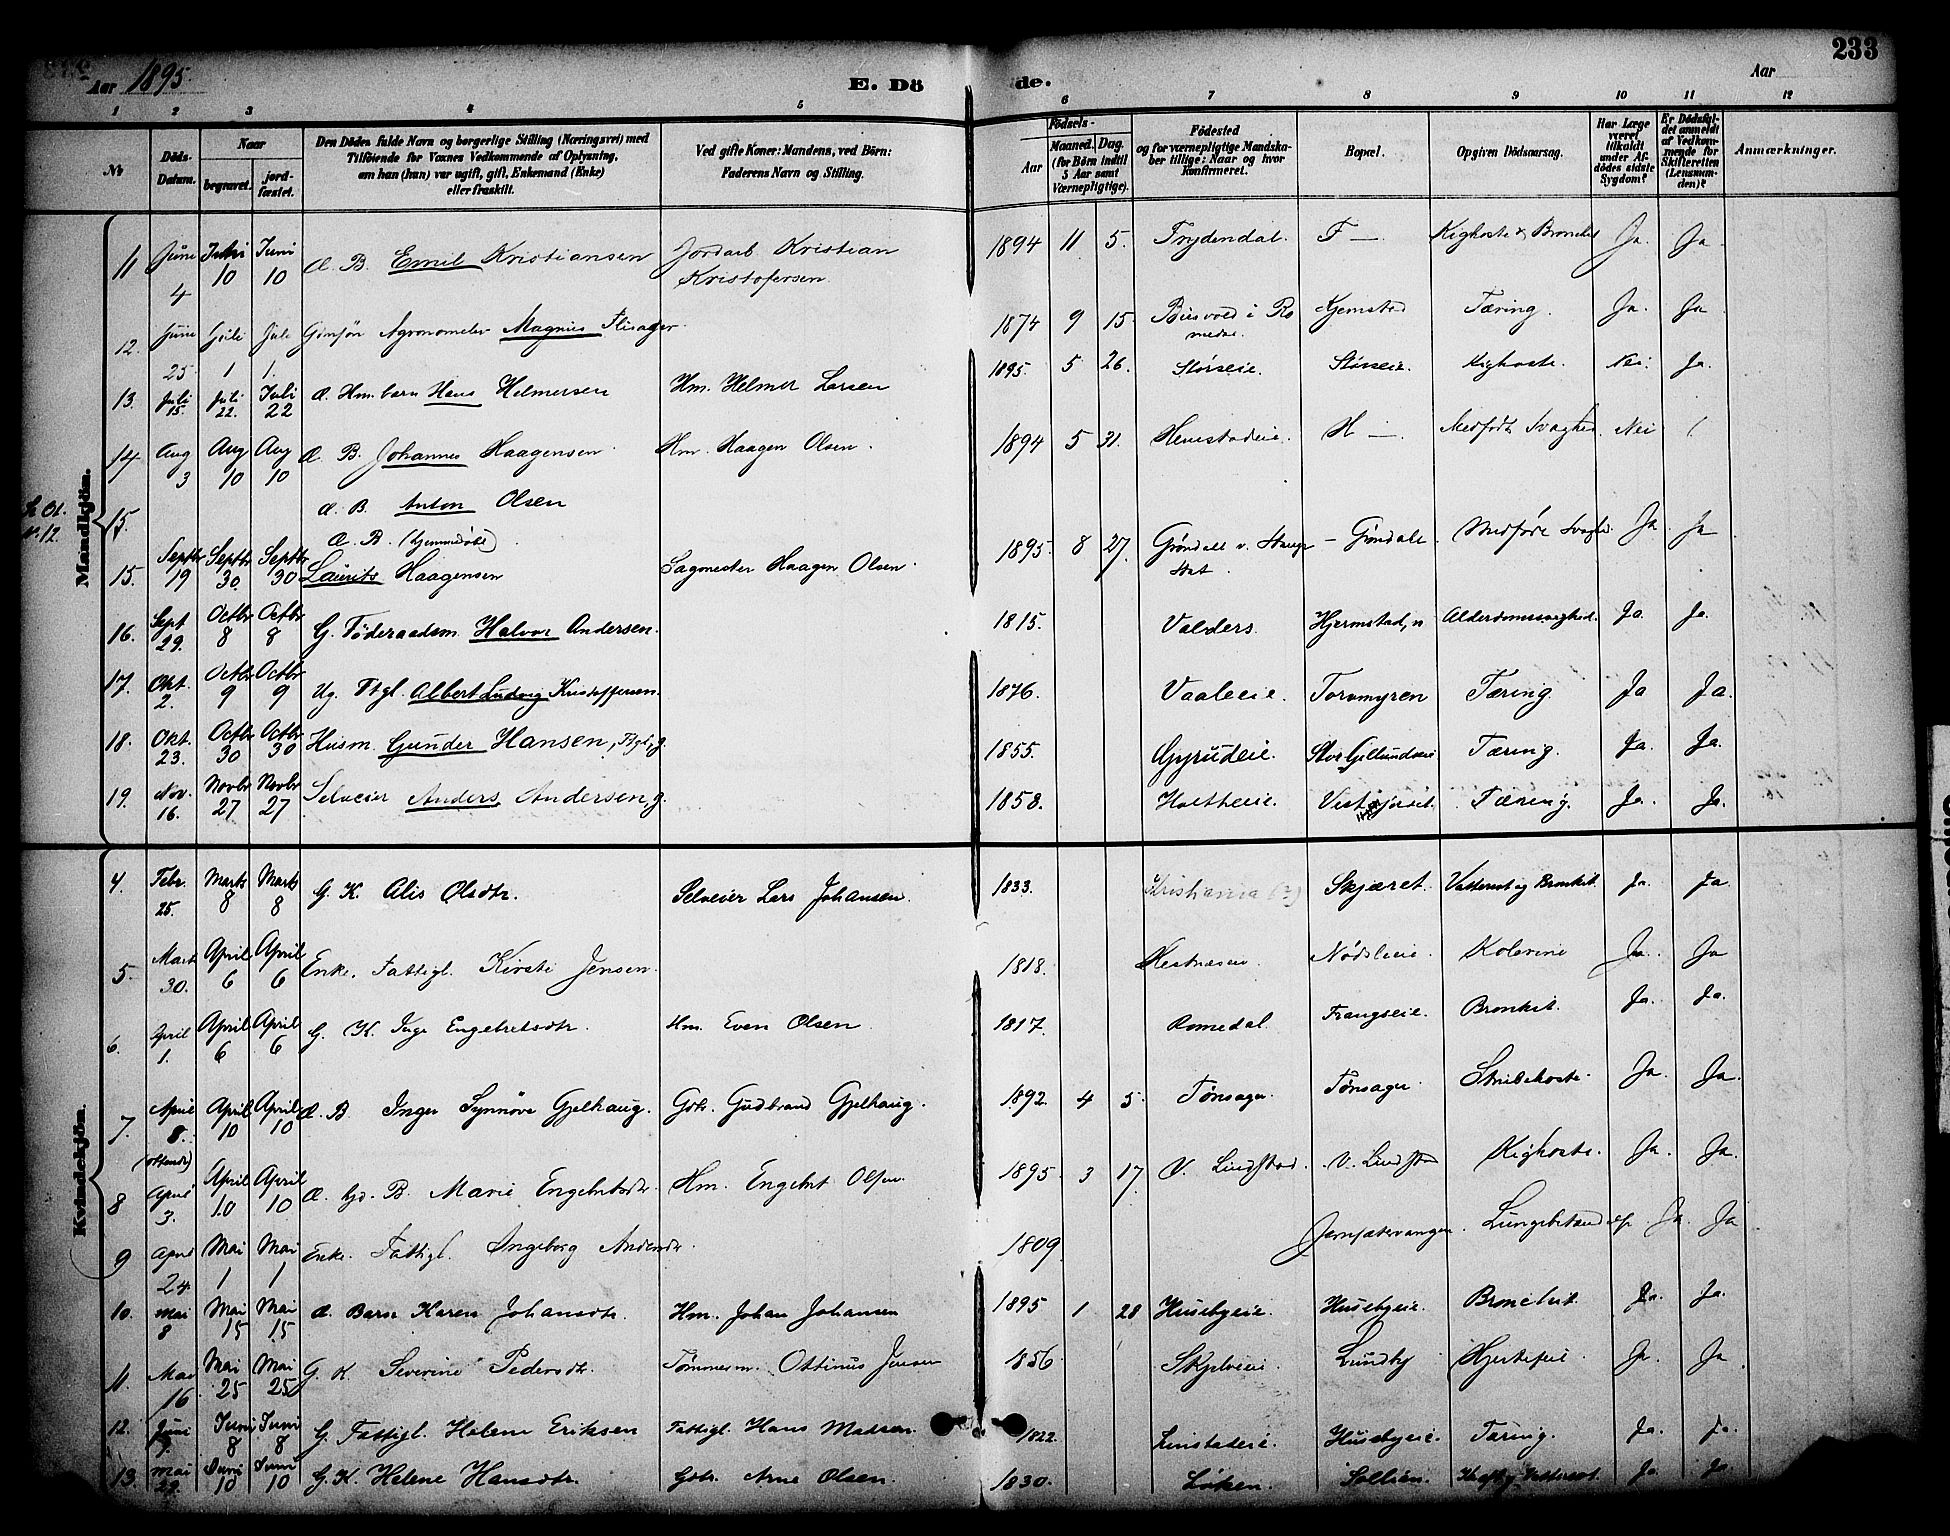 233
Aar 1895.
E. Dö de.
Aar
1 2 3 4 5 6 7 8 9 10 11 12
No
Döds-Datum.
Naar
begravet.
jord-fæstet.
Den Dödes fulde Navn og borgerlige Stilling (Næringsvei) med
Tilföiende for Voxnes Vedkommende af Oplysning,
om han (hun) var ugift, gift, Enkemand (Enke)
eller fraskilt.
Ved gifte Koner: Mandens, ved Börn:
Faderens Navn og Stilling.
Födsels-
Aar
Maaned. Dag.
(for Börn indtil
5 Aar samt
Værnepligtige).
Födested
og for værnepligtige Mandska-
ber tillige: Naar og hvor
konfirmeret.
Bopæl.
Opgiven Dödsaarsag.
Har Læge
været
tilkaldt
under Af-
dödes sidste
Sygdom?
Er Dödsfal-
det anmeldt
af Vedkom-
mende for
Skifteretten
(Lensman-
den)?
Anmærkninger.
Mandkjön.
11 Juni 4 Juni 10 Juni 10 Æ. B. Emil Kristiansen Jordarb Kristian Kristofersen 1894 11 5. Frydendal. F — Kighoste Ja. Ja.
12. Juni 25 Juli 1 Juli 1. Agronomelev Magnus Flisager. 1874 9 15 i Romedal Hjemstad Tæring. Ja. Ja
13. Juli 15 Juli 22. Juli 22 Æ. Hm. barn Hans Helmersen Hm. Helmer Larsen 1895. 5 26. Størseie. Størseie. Kighoste. Nei Ja.
14 Aug 3 Aug 10 Aug 10 Æ. B. Johannes Haagensen. Hm. Haagen Olsen. 1894 5 31. Hemstadeie. H — Medfødt Svaghed. Nei
15. Æ. B. Anton Olsen
15. Septbr 19 Septbr 30. Septbr 30 Æ. B. (hjemmedøbt) Laurits Haagensen Sagmester Haagen Olsen. 1895. 8 27. Grøndale v. Stange Stat. – Grøndale. Medfødt Svaghed Ja Ja
16. Sept 29. Octbr 8 Octbr 8 G. Föderaadsm. Halvor Andersen. 1815. Valders. Hjermstad, n Alderdomssvaghed. Ja. Ja.
17. Okt. 2. Octbr 9 Octbr 9 Ug. Ftgl. Albert Ludvig Kristoffersen. 1876. Vaaleeie. Torvmyren Tæring. Ja Ja.
18. Okt. 23. Octbr 30 Octbr 30 Husm. Gunder Hansen, Ftgl., g. 1855. Gyrudeie. Tæring. Ja. Ja.
19. Nov. 16. Novbr 27 Novbr 27 Selveier Anders Andersen g. 1858. Holtheeie. Tæring. Ja. Ja.
Kvindekjön.
4. Febr. 25. Marts 8 Marts 8 G. K. Alis Olsdtr. Selveier Lars Johansen. 1833. Kristiania (?) Skjæret. Vattersot og Bronkit. Ja. Ja
5. Mart 30. April 6 April 6 Enke. Fattigl. Kirsti Jensen. 1818. Nødsleie. Kolerine Ja. Ja
6. April 1. April 6 April 6 G. K. Inge Engebretsdtr. Hm. Even Olsen. 1817. Romedal. Frangseie. Bronkit. Ja. Ja.
7. April 8. April 10 April 10 Æ. B Inger Synnöve Gjelhaug. Gbr. Gudbrand Gjelhaug. 1892. 4 5. Tønsager. Tønsager Strubehoste. Ja. Ja.
8 April 3. April 10 April 10 Æ. hjd. B. Marie Engebretsdtr. Hm. Engebret Olsen. 1895. 3 17. V. Lindstad. V. Lindstad Kighoste. Ja. Ja.
9 April 24. Mai 1 Mai 1 Enke. Fattigl. Ingeborg Andersdtr. 1809. Lungebetændelse Ja. Ja
10. Mai 8 Mai 15 Mai 15 Æ. Barn Karen Johansdtr. Hm. Johan Johansen 1895 1 28 Husebyeie. Husebyeie. Bronchit. Ja. Ja.
11. Mai 16 Mai 25 Mai 25 G. K. Severine Pedersdtr. Tömmerm. Ottinus Jensen 1856. Skjelveie. Lundby Hjertefeil Ja. Ja
12. Juni Juni 8 Juni 8 G. Fattigl. Helene Eriksen Fattigl. Hans Madsen. 1822. Linstadeie. Husebyeie. Tæring. Ja. Ja.
13. Mai 29. Juni 10 Juni 10 G. K. Helene Hansdtr. Gbr. Arne Olsen. 1830. Løken. Sollien. Kræft og Vattersot. Ja. Ja.